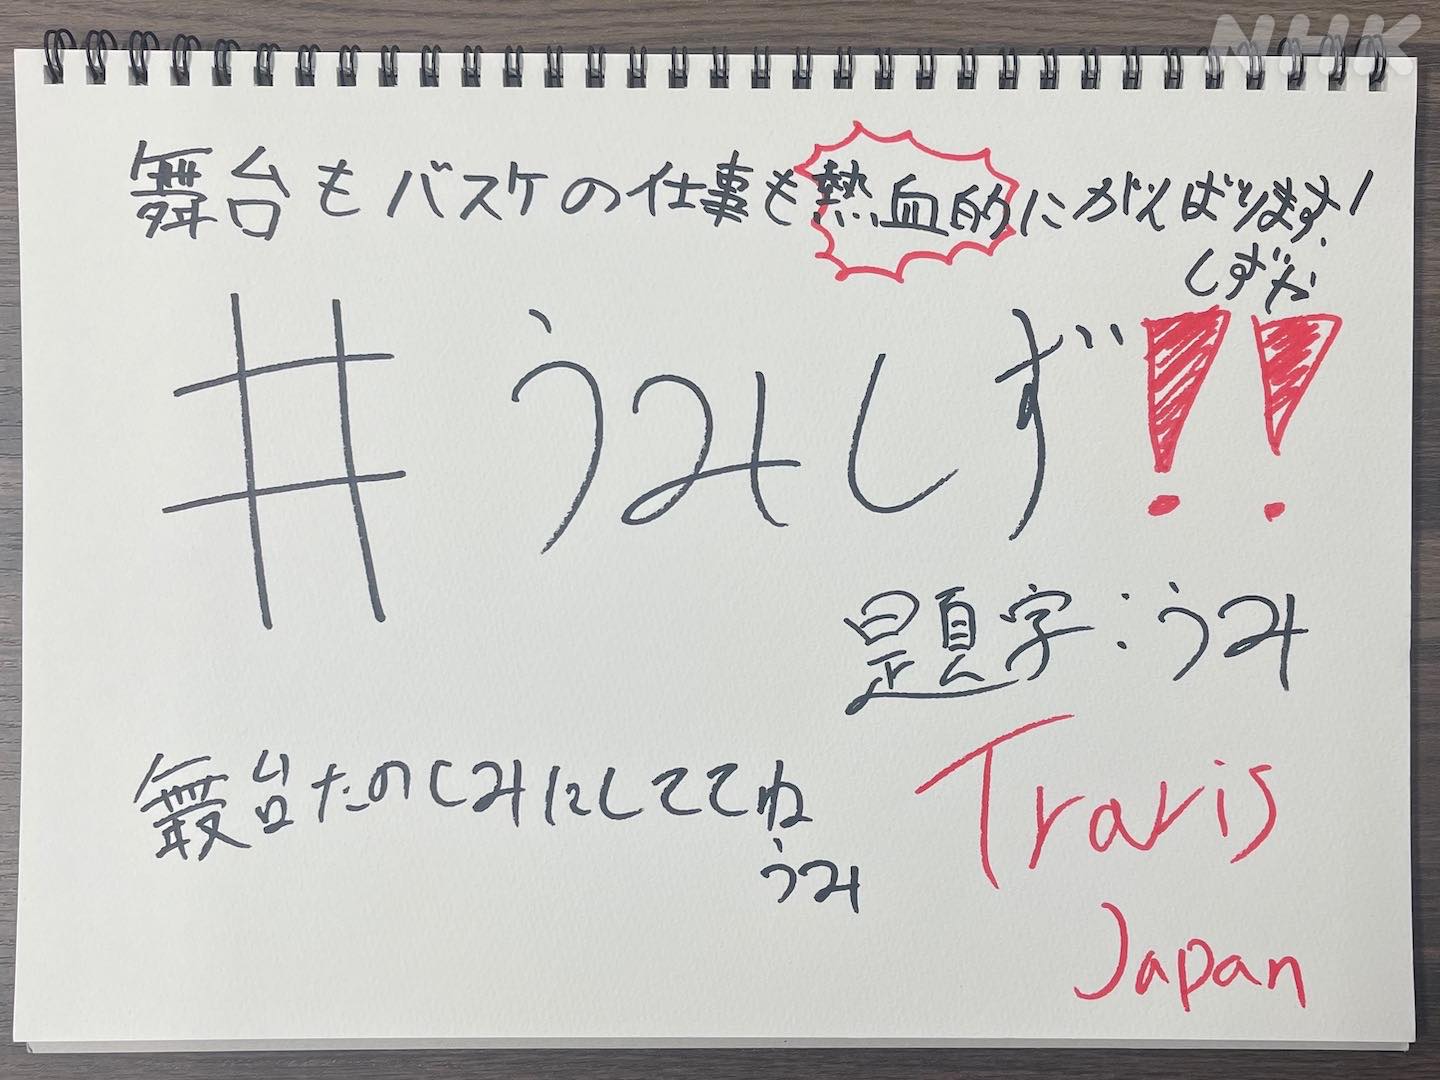 NHK
舞台もバスケの仕事も熱血的にがんばります!
しずや
#うみしず!!
題字:うみ
舞台たのしみにしててね
うみ
Travis
Japan